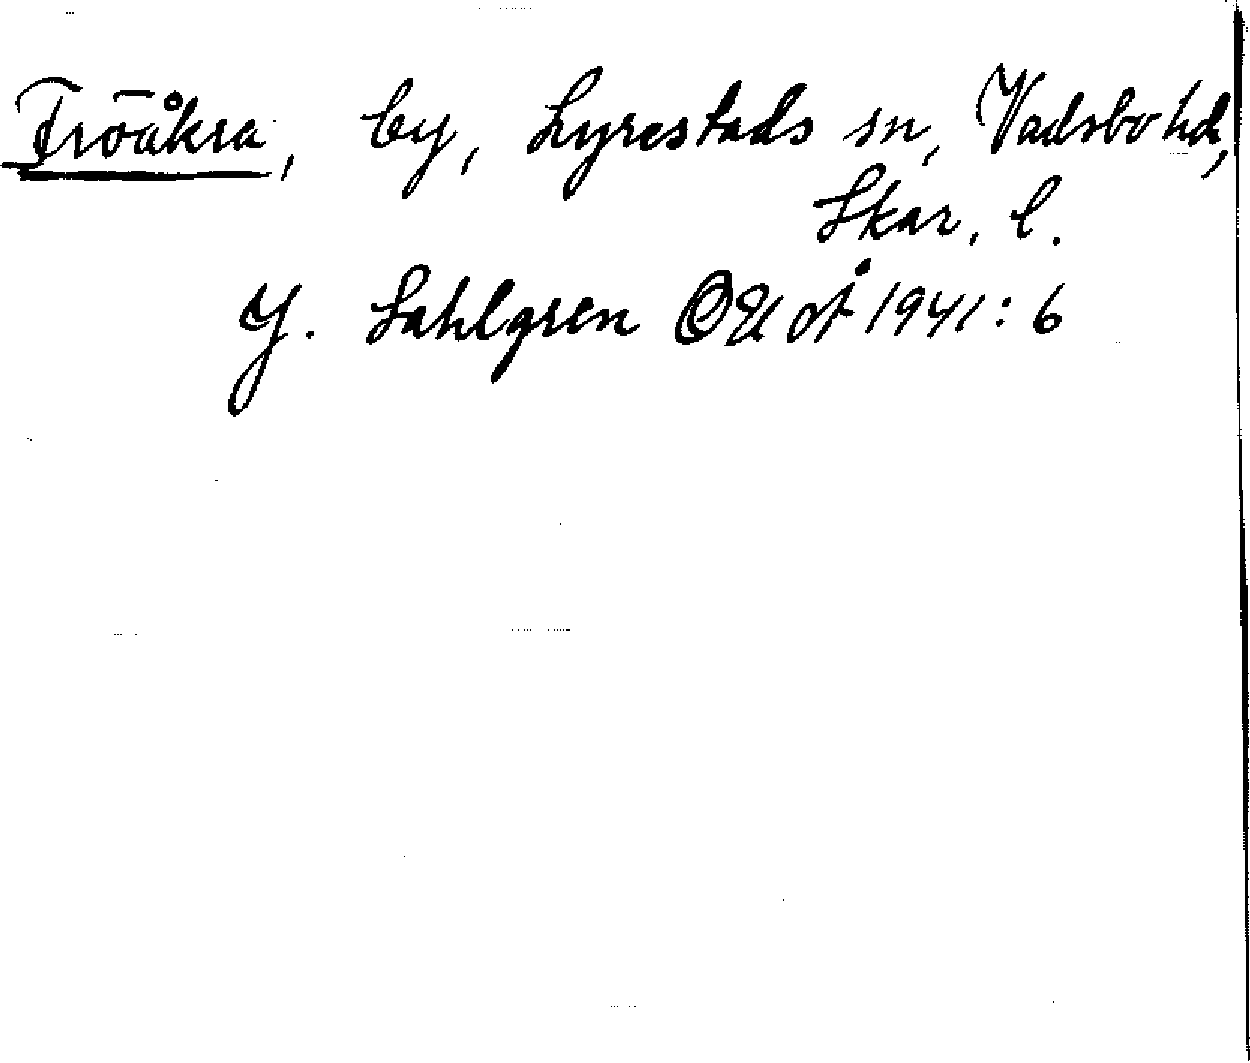 Fröåkra, by, Lyrestads sn, Vadsbo hd,
Skar. l.
J. Sahlgren OUÅ 1941: 6